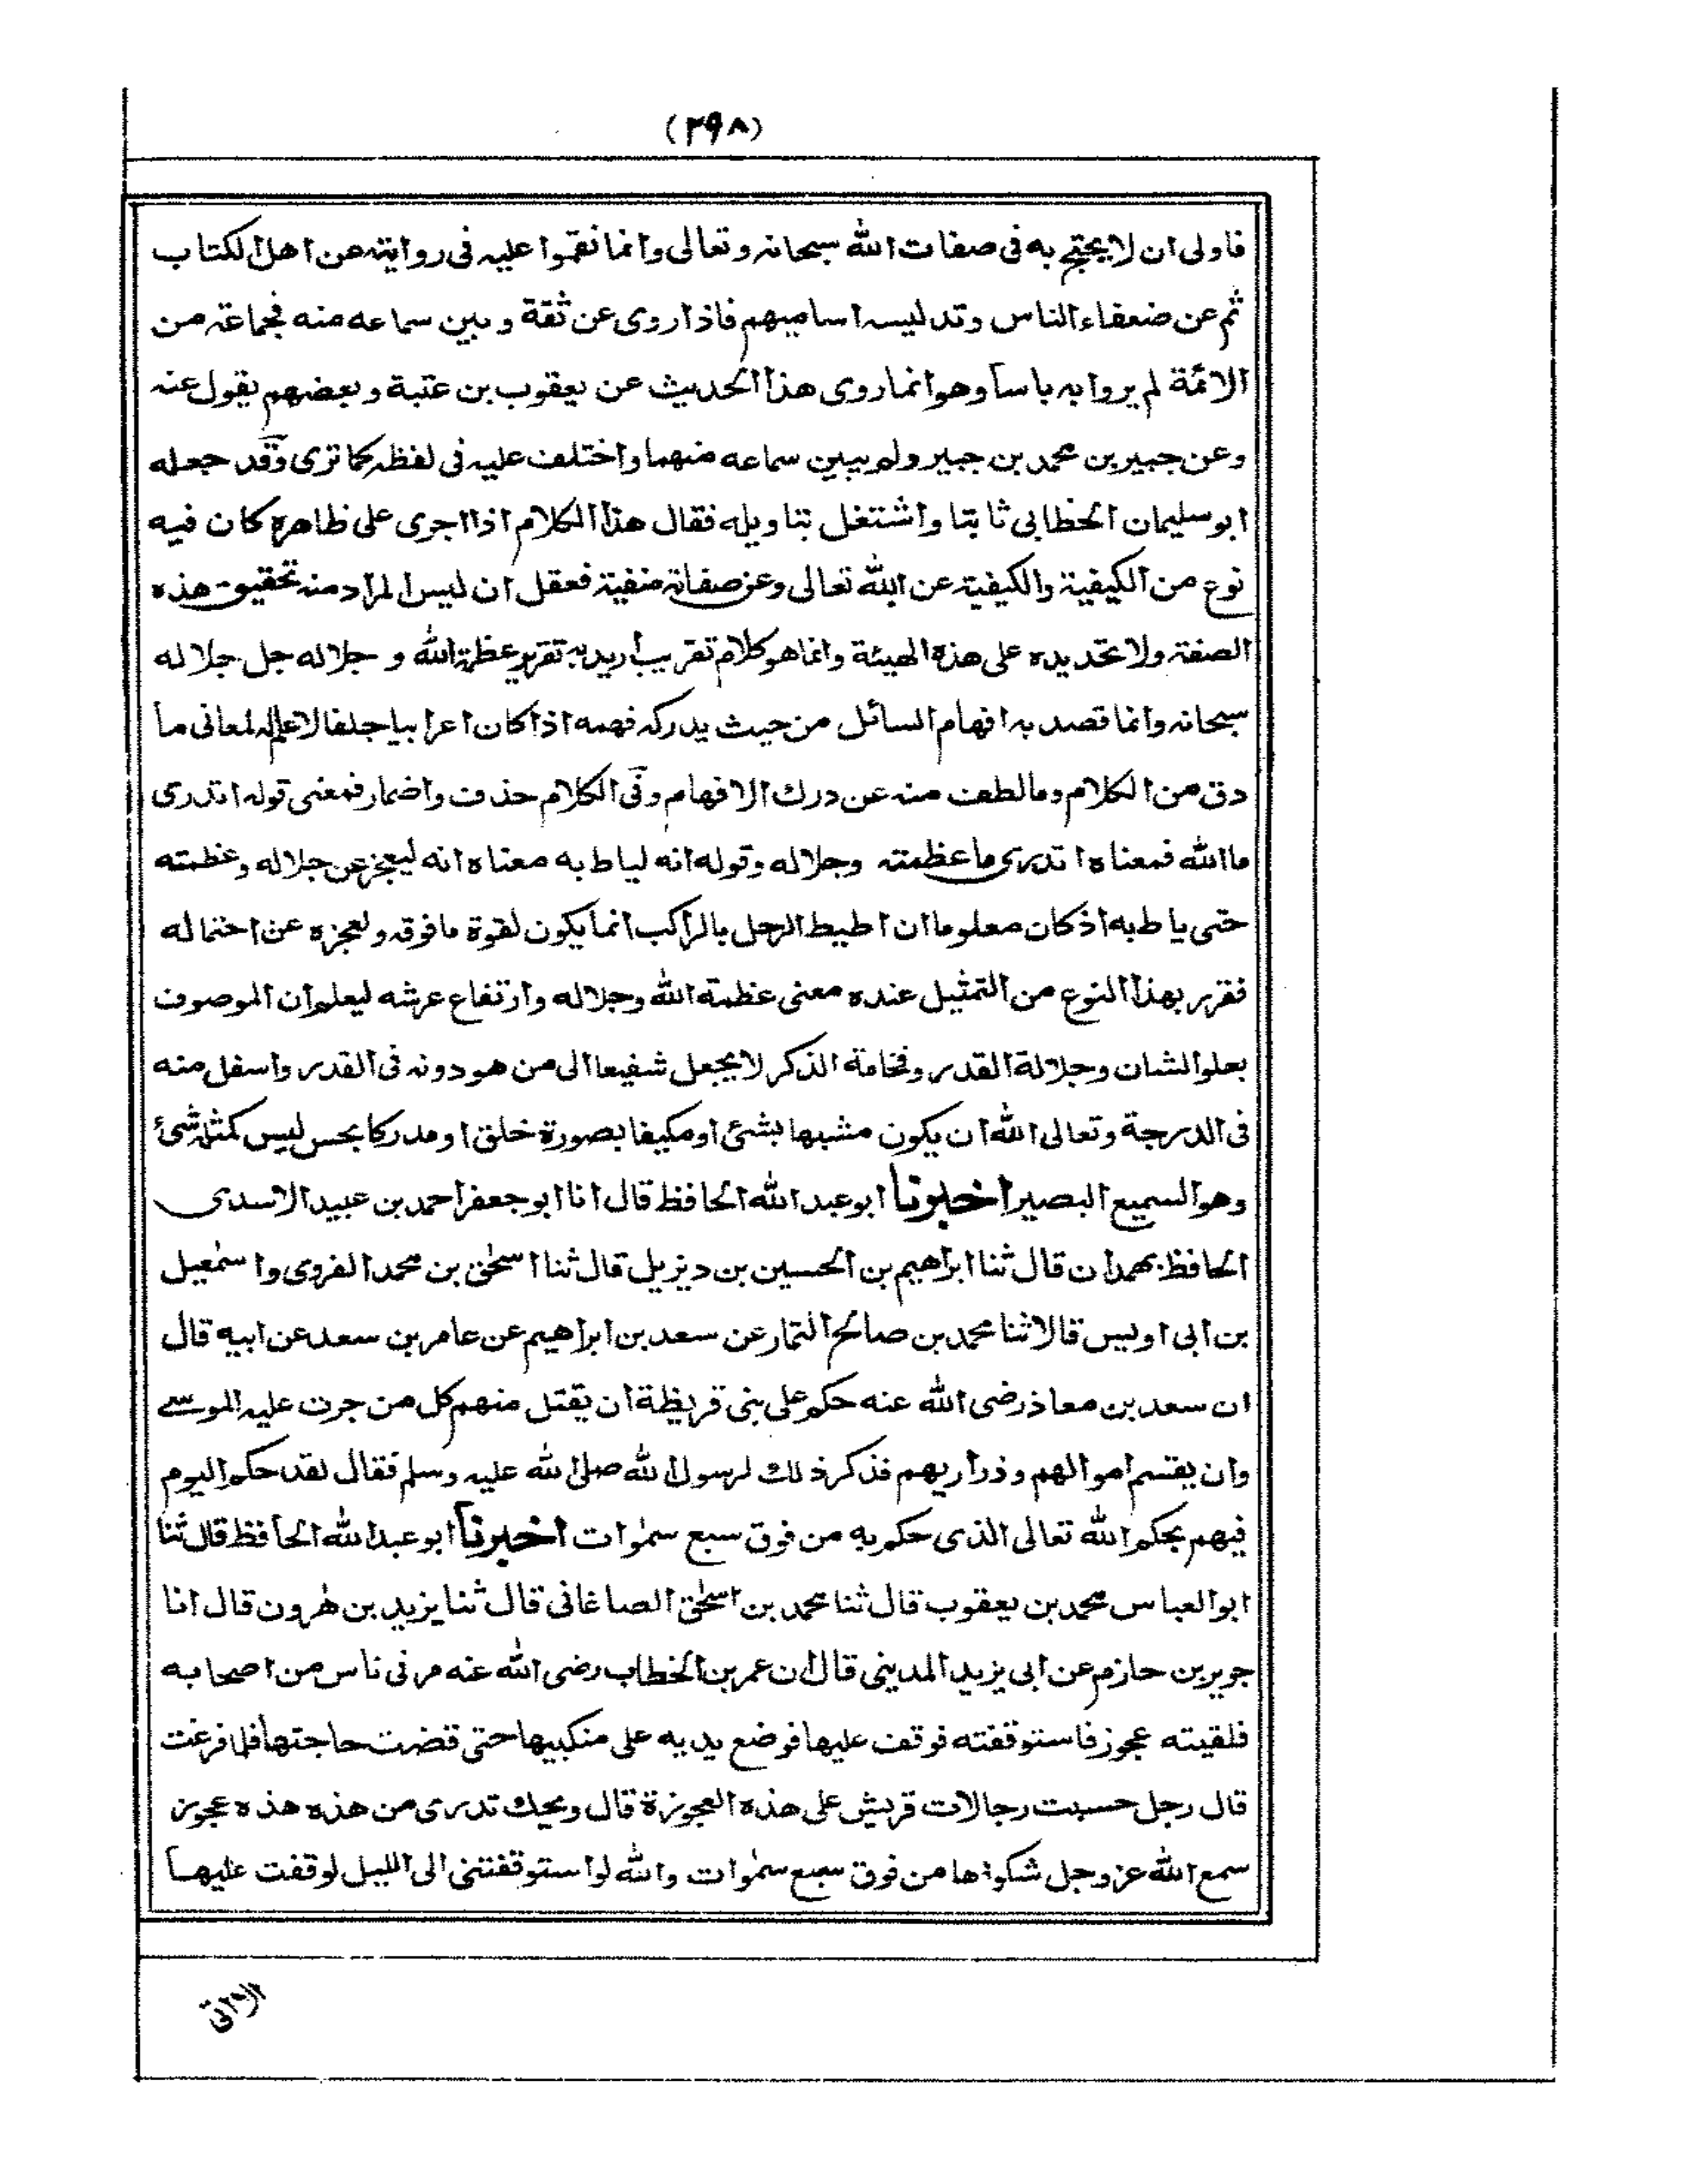 (٢٩٨)
فاولى ان لا يحتج به فى صفات الله سبحانه وتعالى وانما نقموا عليه فى روايته عن اهل الكتاب
ثم عن ضعفاء الناس وتدليسه اساميهم فاذا روى عن ثقة وبين سماعه منه فجماعة من
الائمة لم يروا به باسا وهو انما روى هذا الحديث عن يعقوب بن عتبة وبعضهم يقول عنه
وعن جبير بن محمد بن جبير ولم يبين سماعه منهما واختلف عليه فى لفظه كما ترى وقد جعله
ابو سليمان الخطابى ثابتا واشتغل بتاويله فقال هذا الكلام اذا اجرى على ظاهره كان فيه
نوع من الكيفية والكيفية عن الله تعالى وعن صفاته منفية فعقل ان ليس المراد منه تحقيق هذه
الصفة ولا تحديده على هذه الهيئة وانما هو كلام تقريب اريد به تقرير عظمة الله و جلاله جل جلاله
سبحانه وانما قصد به افهام السائل من حيث يدركه فهمه اذا كان اعرابيا جلفا لا علم له لمعانى ما
دق من الكلام وما لطف منه عن درك الافهام وفى الكلام حذف واضمار فمعنى قوله اتدرى
ما الله فمعناه اتدرى ما عظمته وجلاله وقوله انه لياط به معناه انه ليعجز عن جلاله وعظمته
حتى ياط به اذ كان معلوما ان اطيط الرحل بالراكب انما يكون لقوة ما فوقه ولعجزه عن احتماله
فقرر بهذا النوع من التمثيل عنده معنى عظمة الله وجلاله وارتفاع عرشه ليعلم ان الموصوف
بعلو الشان وجلالة القدر وفخامة الذكر لا يجعل شفيعا الى من هو دونه فى القدر واسفل منه
فى الدرجة وتعالى الله ان يكون مشبها بشئ او مكيفا بصورة خلق او مدركا بحس ليس كمثله شئ
وهو السميع البصير اخبرنا ابو عبد الله الحافظ قال انا ابو جعفر احمد بن عبيد الاسدى
الحافظ بهمدان قال ثنا ابراهيم بن الحسين بن ديزيل قال ثنا اسحٰق بن محمد الفروى واسمٰعيل
بن ابى اويس قالا ثنا محمد بن صالح التمار عن سعد بن ابراهيم عن عامر بن سعد عن ابيه قال
ان سعد بن معاذ رضى الله عنه حكم على بنى قريظة ان يقتل منهم كل من جرت عليه الموسے
وان يقسم اموالهم وذراريهم فذكر ذلك لرسول الله صلى الله عليه وسلم فقال لقد حكم اليوم
فيهم بحكم الله تعالى الذى حكم به من فوق سبع سمٰوات اخبرنا ابو عبد الله الحافظ قال ثنا
ابو العباس محمد بن يعقوب قال ثنا محمد بن اسحٰق الصاغانى قال ثنا يزيد بن هٰرون قال انا
جرير بن حازم عن ابى يزيد المدينى قال ان عمر بن الخطاب رضى الله عنه مر فى ناس من اصحابه
فلقيته عجوز فاستوقفته فوقف عليها فوضع يديه على منكبيها حتى قضت حاجتها فلما فرغت
قال رجل حسبت رجالات قريش على هذه العجوزة قال ويحك تدرى من هذه هذه عجوز
سمع الله عز وجل شكواها من فوق سبع سمٰوات والله لو استوقفتنى الى الليل لوقفت عليها